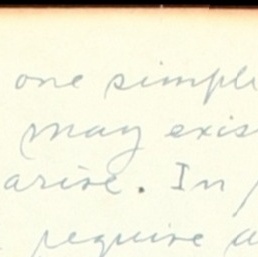 one simpl
may exis
arise. In
require a